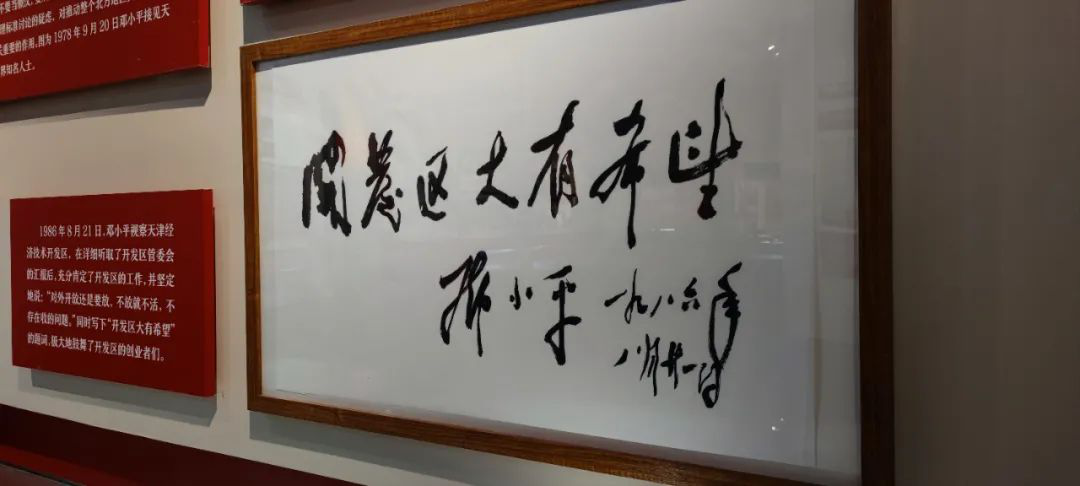 理标准讨论的疑虑，对推动整个北方地
重要的作用。图为1978年9月20日邓小平接见天
界知名人士。
1986年8月21日，邓小平视察天津经
济技术开发区，在详细听取了开发区管委会
的汇报后，充分肯定了开发区的工作，并坚定
地说：“对外开放还是要放，不放就不活，不
存在收的问题。”同时写下“开发区大有希望”
的题词，极大地鼓舞了开发区的创业者们。
開發区大有希望
邓小平
一九八六年
八月廿一日